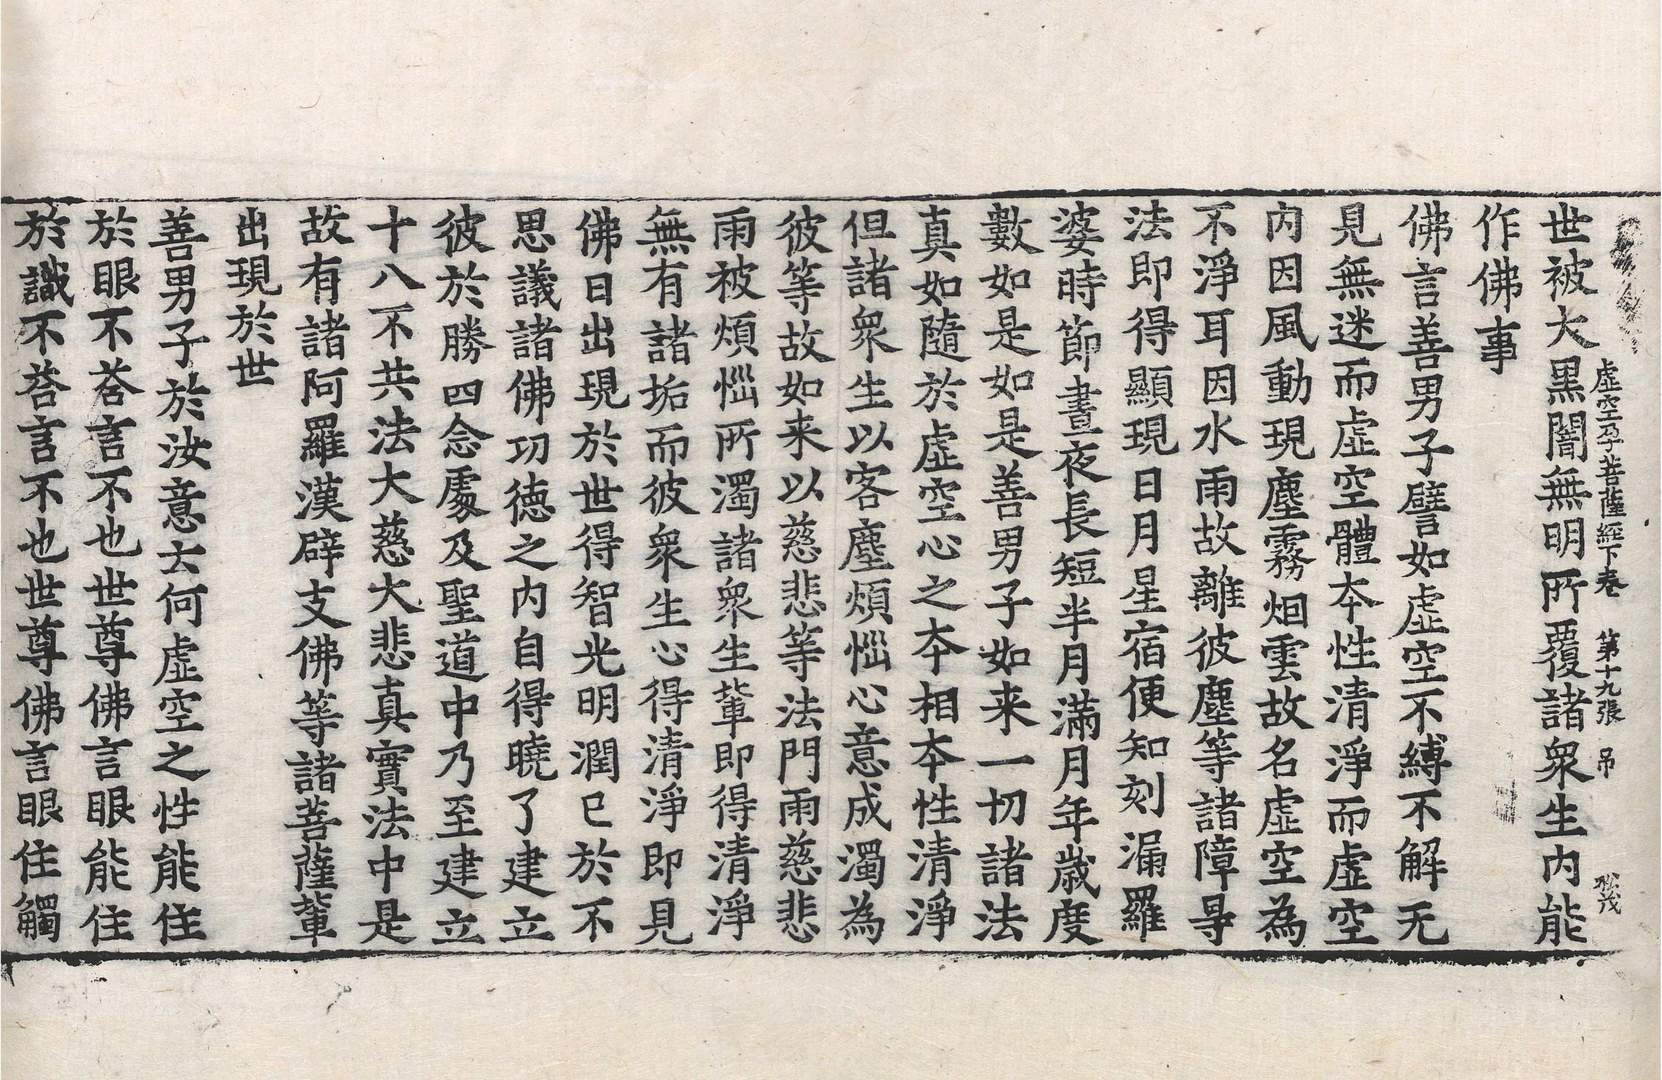 虛空孕菩薩經下卷　第十九張　吊
世被大黑闇無明所覆諸衆生內能
作佛事
佛言善男子譬如虛空不縛不解无
見無迷而虛空體本性清淨而虛空
內因風動現塵霧烟雲故名虛空為
不淨耳因水雨故離彼塵等諸障㝵
法即得顯現日月星宿便知刻漏羅
婆時節晝夜長短半月滿月年歲度
數如是如是善男子如来一切諸法
真如隨於虛空心之本相本性清淨
但諸衆生以客塵煩惱心意成濁為
彼等故如来以慈悲等法門雨慈悲
雨被煩惱所濁諸衆生輩即得清淨
無有諸垢而彼衆生心得清淨即見
佛日出現於世得智光明潤已於不
思議諸佛功德之內自得曉了建立
彼於勝四念處及聖道中乃至建立
十八不共法大慈大悲真實法中是
故有諸阿羅漢辟支佛等諸菩薩輩
出現於世
善男子於汝意云何虛空之性能住
於眼不荅言不也世尊佛言眼能住
於識不荅言不也世尊佛言眼住觸